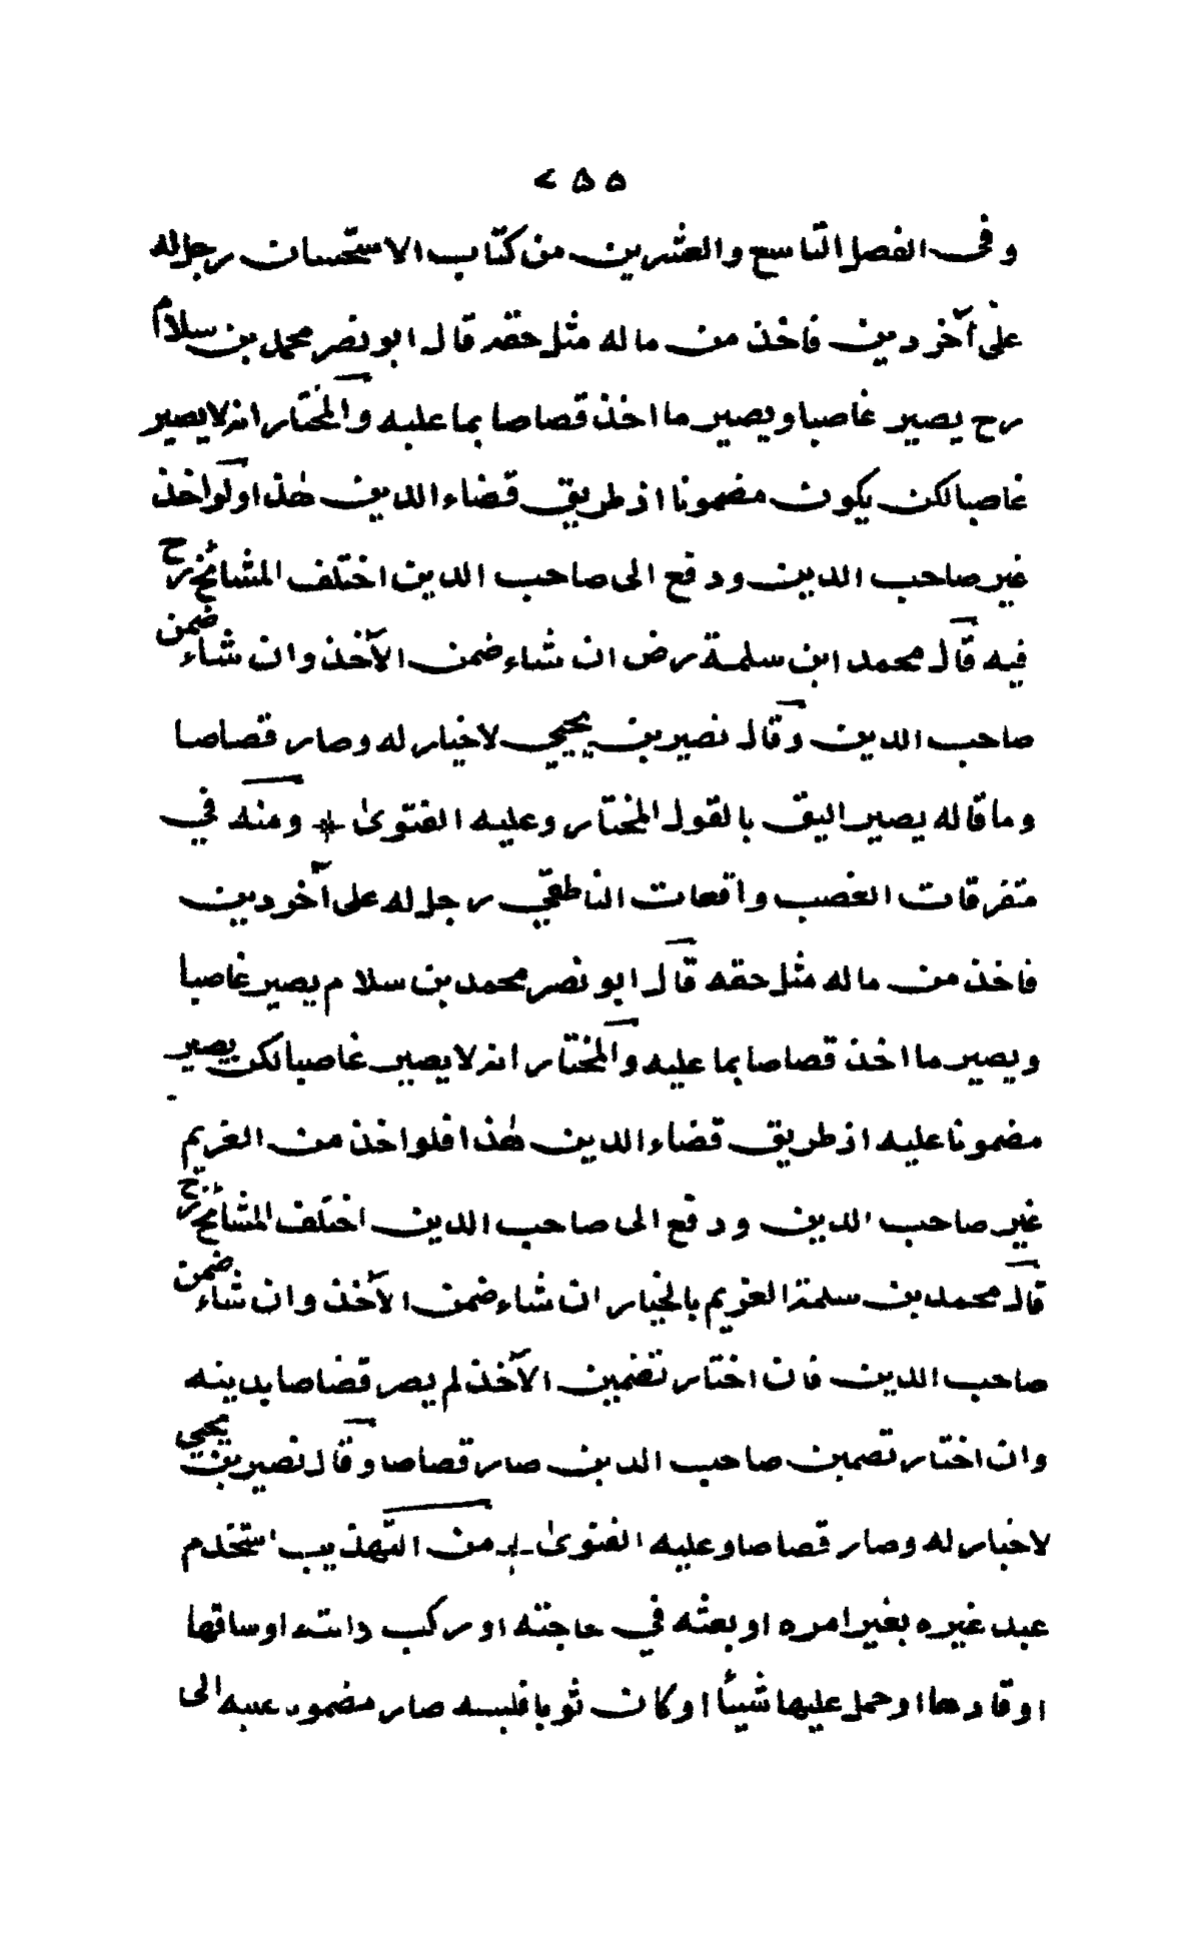 ۲۵۵
وفى الفصل التاسع والعشرين من كتاب الاستحسان رجل له
على آخر دين فاخذ من ماله مثل حقه قال ابو نصر محمد بن سلام
رح يصير غاصبا ويصير ما اخذ قصاصا بما عليه والمختار انه لا يصير
غاصبا لكن يكون مضمونا اذ طريق قضاء الدين هٰذا ولو اخذ
غير صاحب الدين ودفع الى صاحب الدين اختلف المشائخ رح
فيه قال محمد ابن سلمة رض ان شاء ضمن الآخذ وان شاء ضمن
صاحب الدين وقال نصير بن يحيي لا خيار له وصار قصاصا
وما قاله يصير اليق بالقول المختار وعليه الفتوىٰ * ومنه في
متفرقات الغصب واقعات الناطقي رجل له على آخر دين
فاخذ من ماله مثل حقه قال ابو نصر محمد بن سلام يصير غاصبا
ويصير ما اخذ قصاصا بما عليه والمختار انه لا يصير غاصبا لكن يصير
مضمونا عليه اذ طريق قضاء الدين هٰذا فلو اخذ من الغريم
غير صاحب الدين ودفع الى صاحب الدين اختلف المشائخ رح
قال محمد بن سلمة الغريم بالخيار ان شاء ضمن الآخذ وان شاء ضمن
صاحب الدين فان اختار تضمين الآخذ لم يصر قصاصا بدينه
وان اختار تضمين صاحب الدين صار قصاصا وقال نصير بن يحيى
لا خيار له وصار قصاصا وعليه الفتوىٰ * من التهذيب استخدم
عبد غيره بغير امره او بعثه في حاجته او ركب دابته او ساقها
او قادها او حمل عليها شيئا او كان ثوبا فلبسه صار مضمونا عليه الى